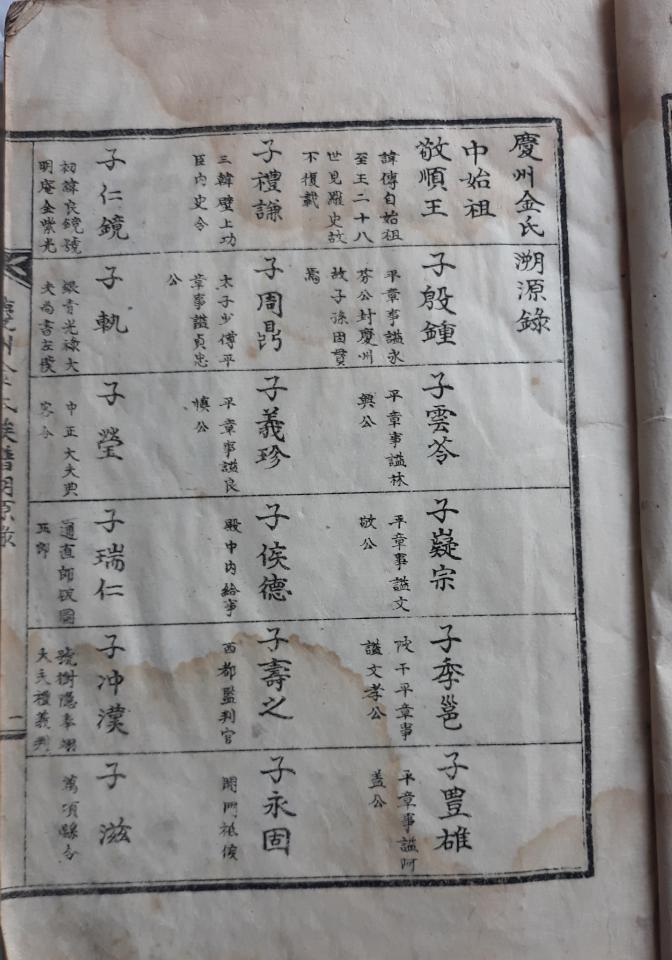 慶州金氏溯源錄
中始祖
敬順王
諱傳自始祖
至王二十八
世見羅史故
不復載
子殷鍾
平章事謚永
芬公封慶州
故子孫因貫
焉
子雲苓
平章事謚林
興公
子嶷宗
平章事謚文
敬公
子季邕
平章事
謚文孝公
子豊雄
平章事謚阿
盖公
子禮謙
三韓壁上功
臣內史令
子周鼎
太子少傅平
章事謚貞忠
公
子義珍
平章事謚良
愼公
子俟德
殿中內給事
子壽之
西都監判官
子永固
閤門祗候
子仁鏡
初諱良鏡號
明庵金紫光
子軌
銀青光祿大
夫尚書左僕
子瑩
中正大夫典
客令
子瑞仁
通直郎版圖
正郎
子冲漢
號樹隱奉翊
大夫禮義判
子滋
萬頃縣令
慶州金氏族譜溯源錄
一